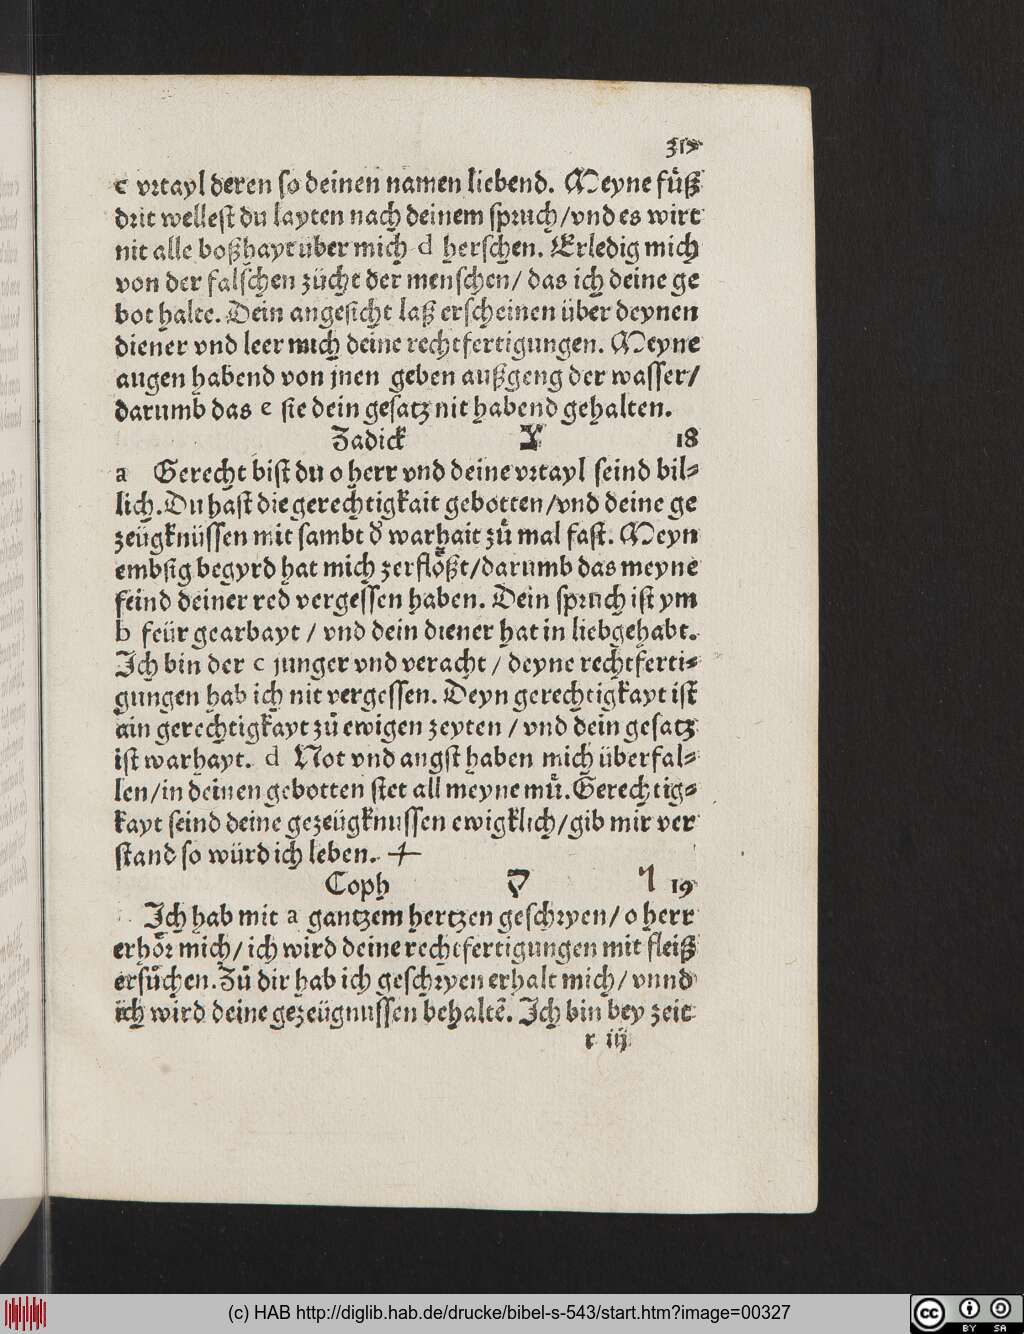 c vrtayl deren so deinen namen liebend. Meyne fuͤß
drit wellest du layten nach deinem spruch/vnd es wirt
nit alle boßhayt über mich d herschen. Erledig mich
von der falschen zücht der menschen/ das ich deine ge
bot halte. Dein angesicht laß erscheinen über deynen
diener vnd leer mich deine rechtfertigungen. Meyne
augen habend von jnen geben außgeng der wasser/
darumb das e sie dein gesatz nit habend gehalten.
Zadick צ 18
a Gerecht bist du o herr vnd deine vrtayl seind bil⸗
lich. Du hast die gerechtigkait gebotten/vnd deine ge
zeügknüssen mit sambt d̕ warhait zuͤ mal fast. Meyn
embsig begyrd hat mich zerfloͤßt/darumb das meyne
feind deiner red vergessen haben. Dein spruch ist ym
b feür gearbayt / vnd dein diener hat in liebgehabt.
Ich bin der c junger vnd veracht / deyne rechtferti⸗
gungen hab ich nit vergessen. Deyn gerechtigkayt ist
ain gerechtigkayt zuͤ ewigen zeyten / vnd dein gesatz
ist warhayt. d Not vnd angst haben mich überfal⸗
len/in deinen gebotten stet all meyne muͤ. Gerechtig⸗
kayt seind deine gezeügknussen ewigklich/gib mir ver
stand so würd ich leben.
Coph ק 19
Ich hab mit a gantzem hertzen geschryen/o herr
erhoͤr mich/ ich wird deine rechtfertigungen mit fleiß
ersuͤchen. Zuͤ dir hab ich geschryen erhalt mich/ vnnd
ich wird deine gezeügnussen behaltē. Ich bin bey zeit
r iij
(c) HAB http://diglib.hab.de/drucke/bibel-s-543/start.htm?image=00327
cc BY SA